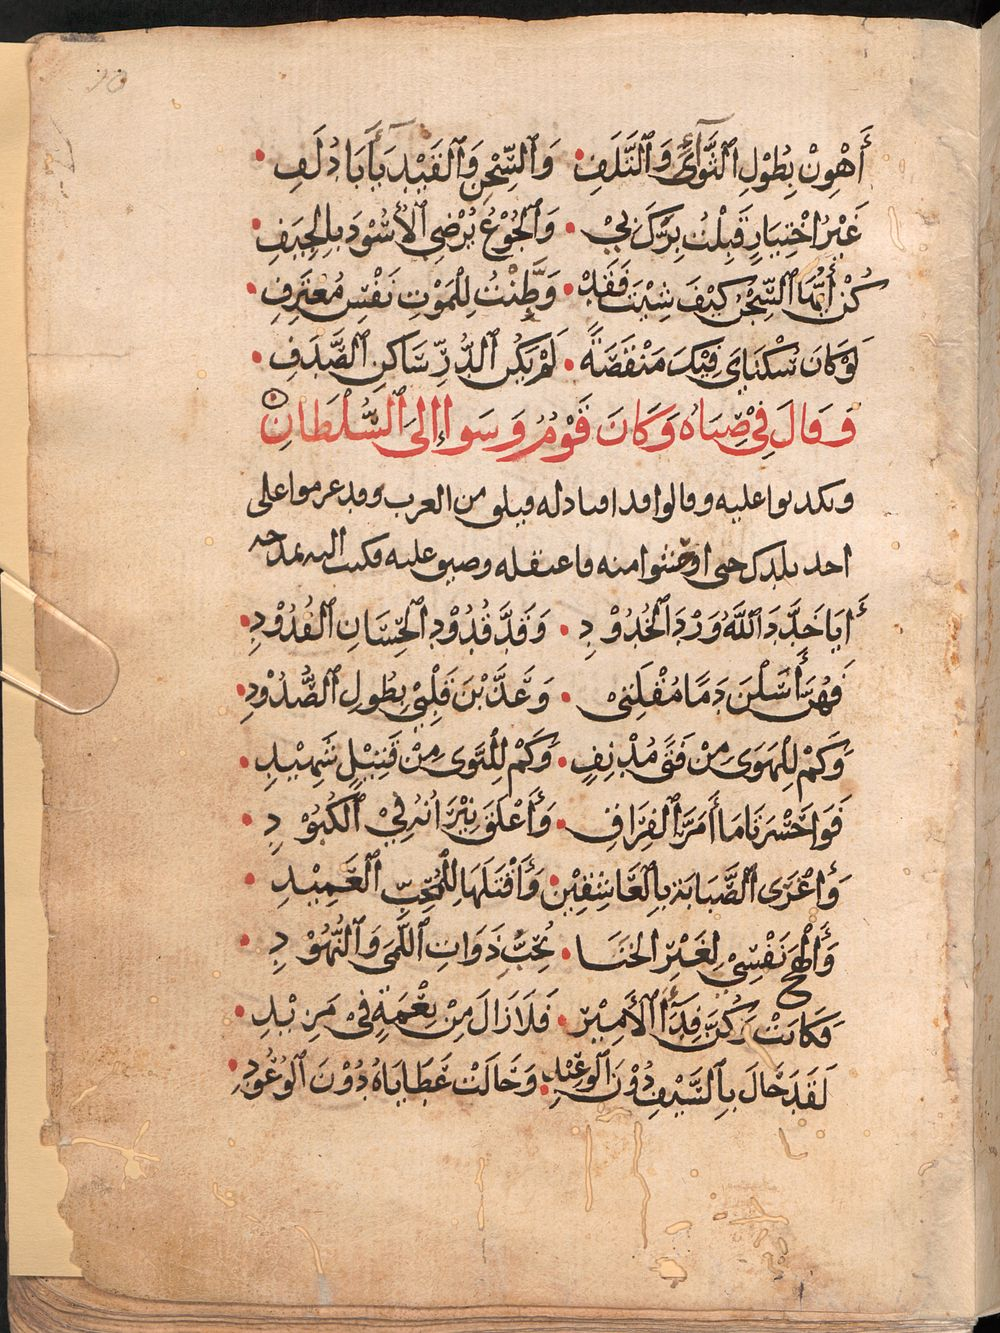 أَهْوِنْ بِطُوْلِ ٱلثَّوَآءِ وَٱلتَّلَفِ • وَٱلسِّجْنِ وَٱلقَيْدِ يَآ أَبَا دُلَفِ •
غَيْرُ اخْتِيَارٍ قَبِلْتُ بِرَّكَ بِيْ • وَٱلجُوْعُ يُرْضِي ٱلأُسُوْدَ بِالجِيَفِ •
كُنْ أَيُّهَا ٱلسِّجْنُ كَيْفَ شِيْتَ فَقَدْ • وَطَّنْتُ لِلْمَوْتِ نَفْسَ مُعْتَرِفِ •
لَوْ كَانَ سُكْنَايَ فِيْكَ مَنْقَصَةً • لَمْ يَكُنِ ٱلدُّرُّ سَاكِنَ ٱلصَّدَفِ •
وَقَالَ فِيْ صِبَاهُ وَكَانَ قَوْمٌ وَسَوا إلىَ ٱلسُّلْطَانِ
وتكذبوا عليه وقالوا قد انقاد له قبلق من العرب وقد عزموا على
احد بلدك حتى اوحشوا منه فاعتقله وضيق عليه فكتب اليه يمدحه
أَيَا خَدَّدَ ٱللَّهُ وَرْدَ ٱلخُدُوْدِ • وَقَدَّ قُدُوْدَ ٱلحِسَانِ ٱلقُدُوْدِ •
فَهُنَّ أَسَلْنَ دَمًا مُقْلَتِيْ • وَعَذَّبْنَ قَلْبِيْ بِطُولِ ٱلصُّدُوْدِ •
وَكَمْ لِلْهَوَى مِنْ فَتًى مُدْنِفٍ • وَكَمْ لِلنَّوَى مِنْ قَتِيْلٍ شَهِيْدِ •
فَوَا حَسْرَتَا مَا أَمَرَّ ٱلفِرَاقَ • وَأَعْلَقَ نِيْرَانُهُ فِيْ ٱلكُبُوْدِ •
وَأَغْرَى ٱلصَّبَابَةَ بِالعَاشِقِيْنَ • وَأَقْتَلَهَا لِلْمُحِبِّ ٱلعَمِيْدِ •
وَأَلْهَجَ نَفْسِيْ لِغَيْرِ الخَنَا • بِحُبِّ ذَوَاتِ ٱللَّمَى وَٱلنُّهُوْدِ •
فَكَانَتْ وَكُنَّ فِدَآءَ ٱلأَمِيْرِ • فَلَا زَالَ مِنْ نِعْمَةٍ فِيْ مَزِيْدِ •
لَقَدْ حَالَ بِٱلسَّيْفِ دُوْنَ ٱلوَعِيْدِ • وَحَالَتْ عَطَايَاهُ دُوْنَ ٱلوُعُوْدِ •